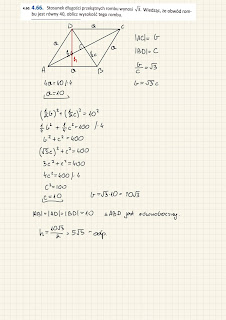 4.66. Stosunek długości przekątnych rombu wynosi √3. Wiedząc, że obwód rombu jest równy 40, oblicz wysokość tego rombu.
D C
a a a
A a B
h
|AC| = b
|BD| = c
b/c = √3
b = √3c
4a = 40 /:4
a = 10
(½b)² + (½c)² = 10²
¼b² + ¼c² = 100 /·4
b² + c² = 400
(√3c)² + c² = 400
3c² + c² = 400
4c² = 400 /:4
c² = 100
c = 10
b = √3·10 = 10√3
|AB| = |AD| = |BD| = 10 △ABD jest równoboczny
h = 10√3/2 = 5√3 - odp.